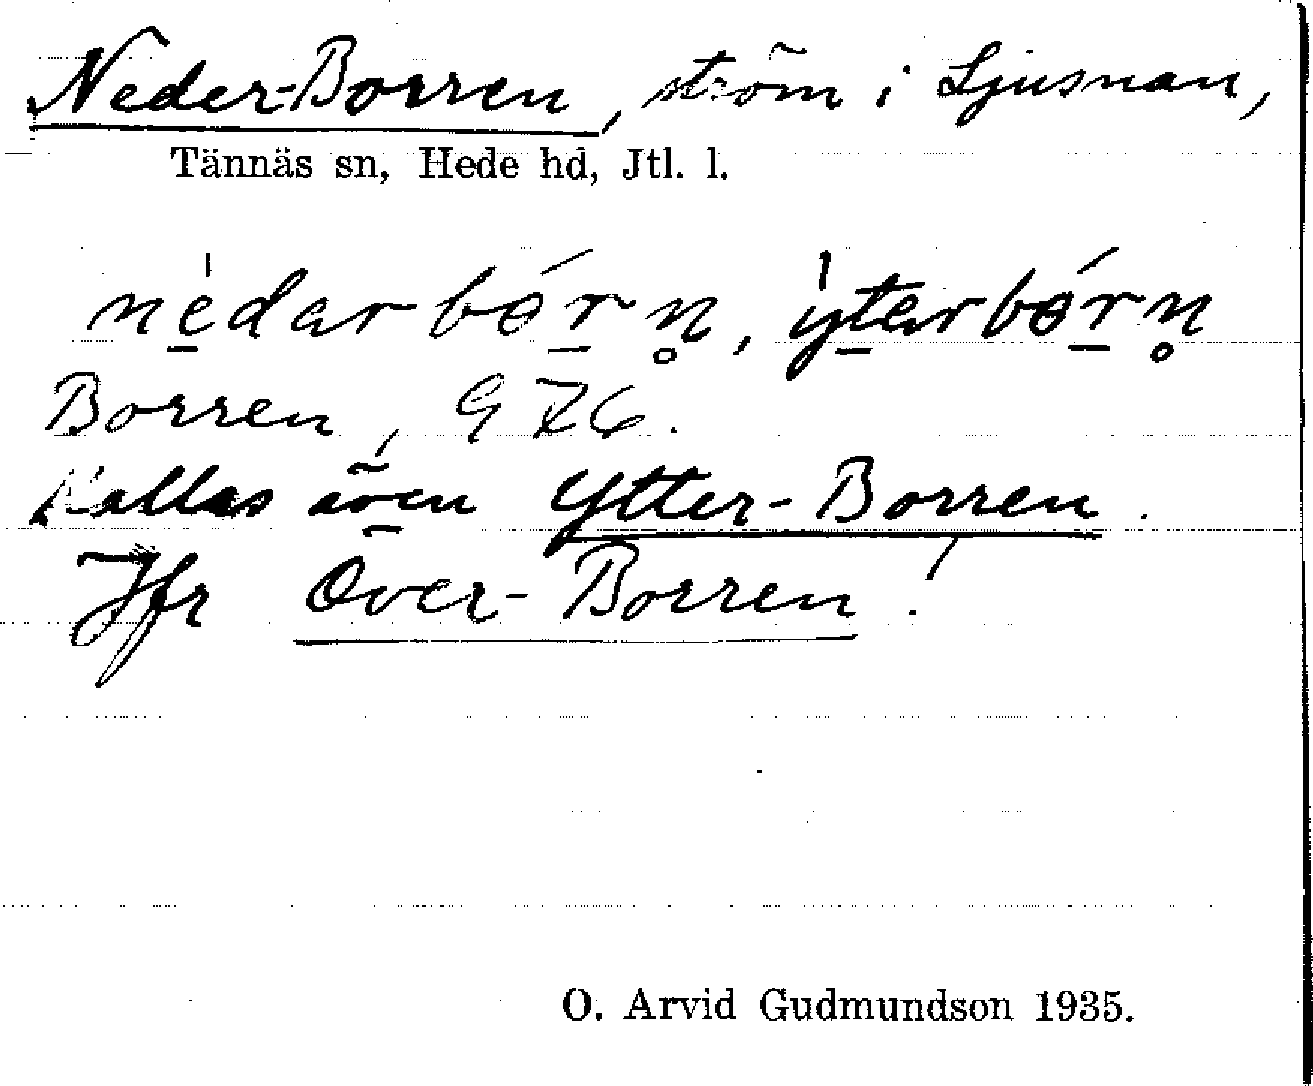 Neder-Borren, ström i Ljusnan,
Tännäs sn, Hede hd, Jtl. l.
nè̠darbór̠n̥, ỳt̠arbór̠n̥
Borren, G 76.
Kallas även Ytter-Borren.
Jfr Över-Borren!
O. Arvid Gudmundson 1935.